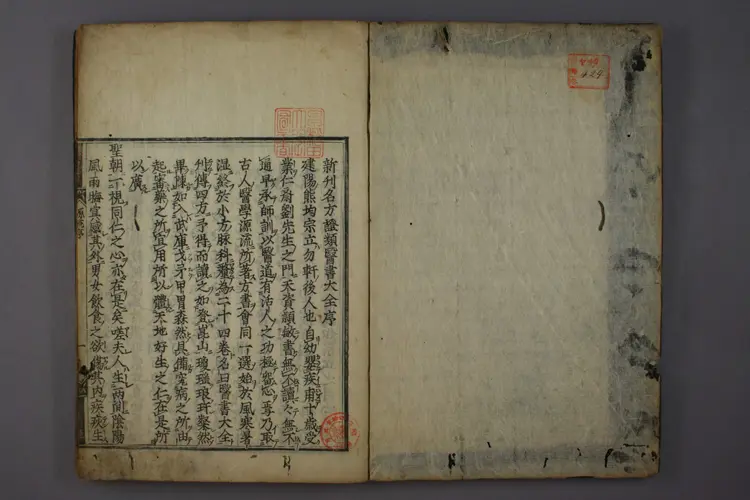 新刊名方證類醫書大全序
建陽熊均宗立勿軒後人也自幼嬰疾甫十歲受
業仁齋劉先生之門天資穎敏書無不讀々無不
通早承師訓以醫道有活人之功極留心焉乃取
古人醫學源流所著方書會同一選始於風寒暑
濕終於小方脉科彙為二十四卷名曰醫書大全
刊傳四方予得而讀之如登崑山瓊瑰琅玕粲然
畢陳如入武庫戈矛甲冑森然具備究病之所由
起審藥之所宜用所以體天地好生之仁在是所
以廣
聖朝一視同仁之心亦在是矣嗟夫人生兩間陰陽
風雨晦宜感其外男女飲食之欲傷其内疾疢生